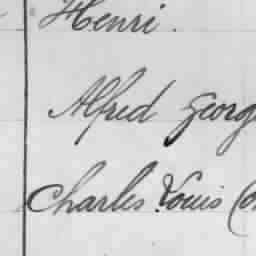 Henri.
Alfred Georg
Charles Louis (